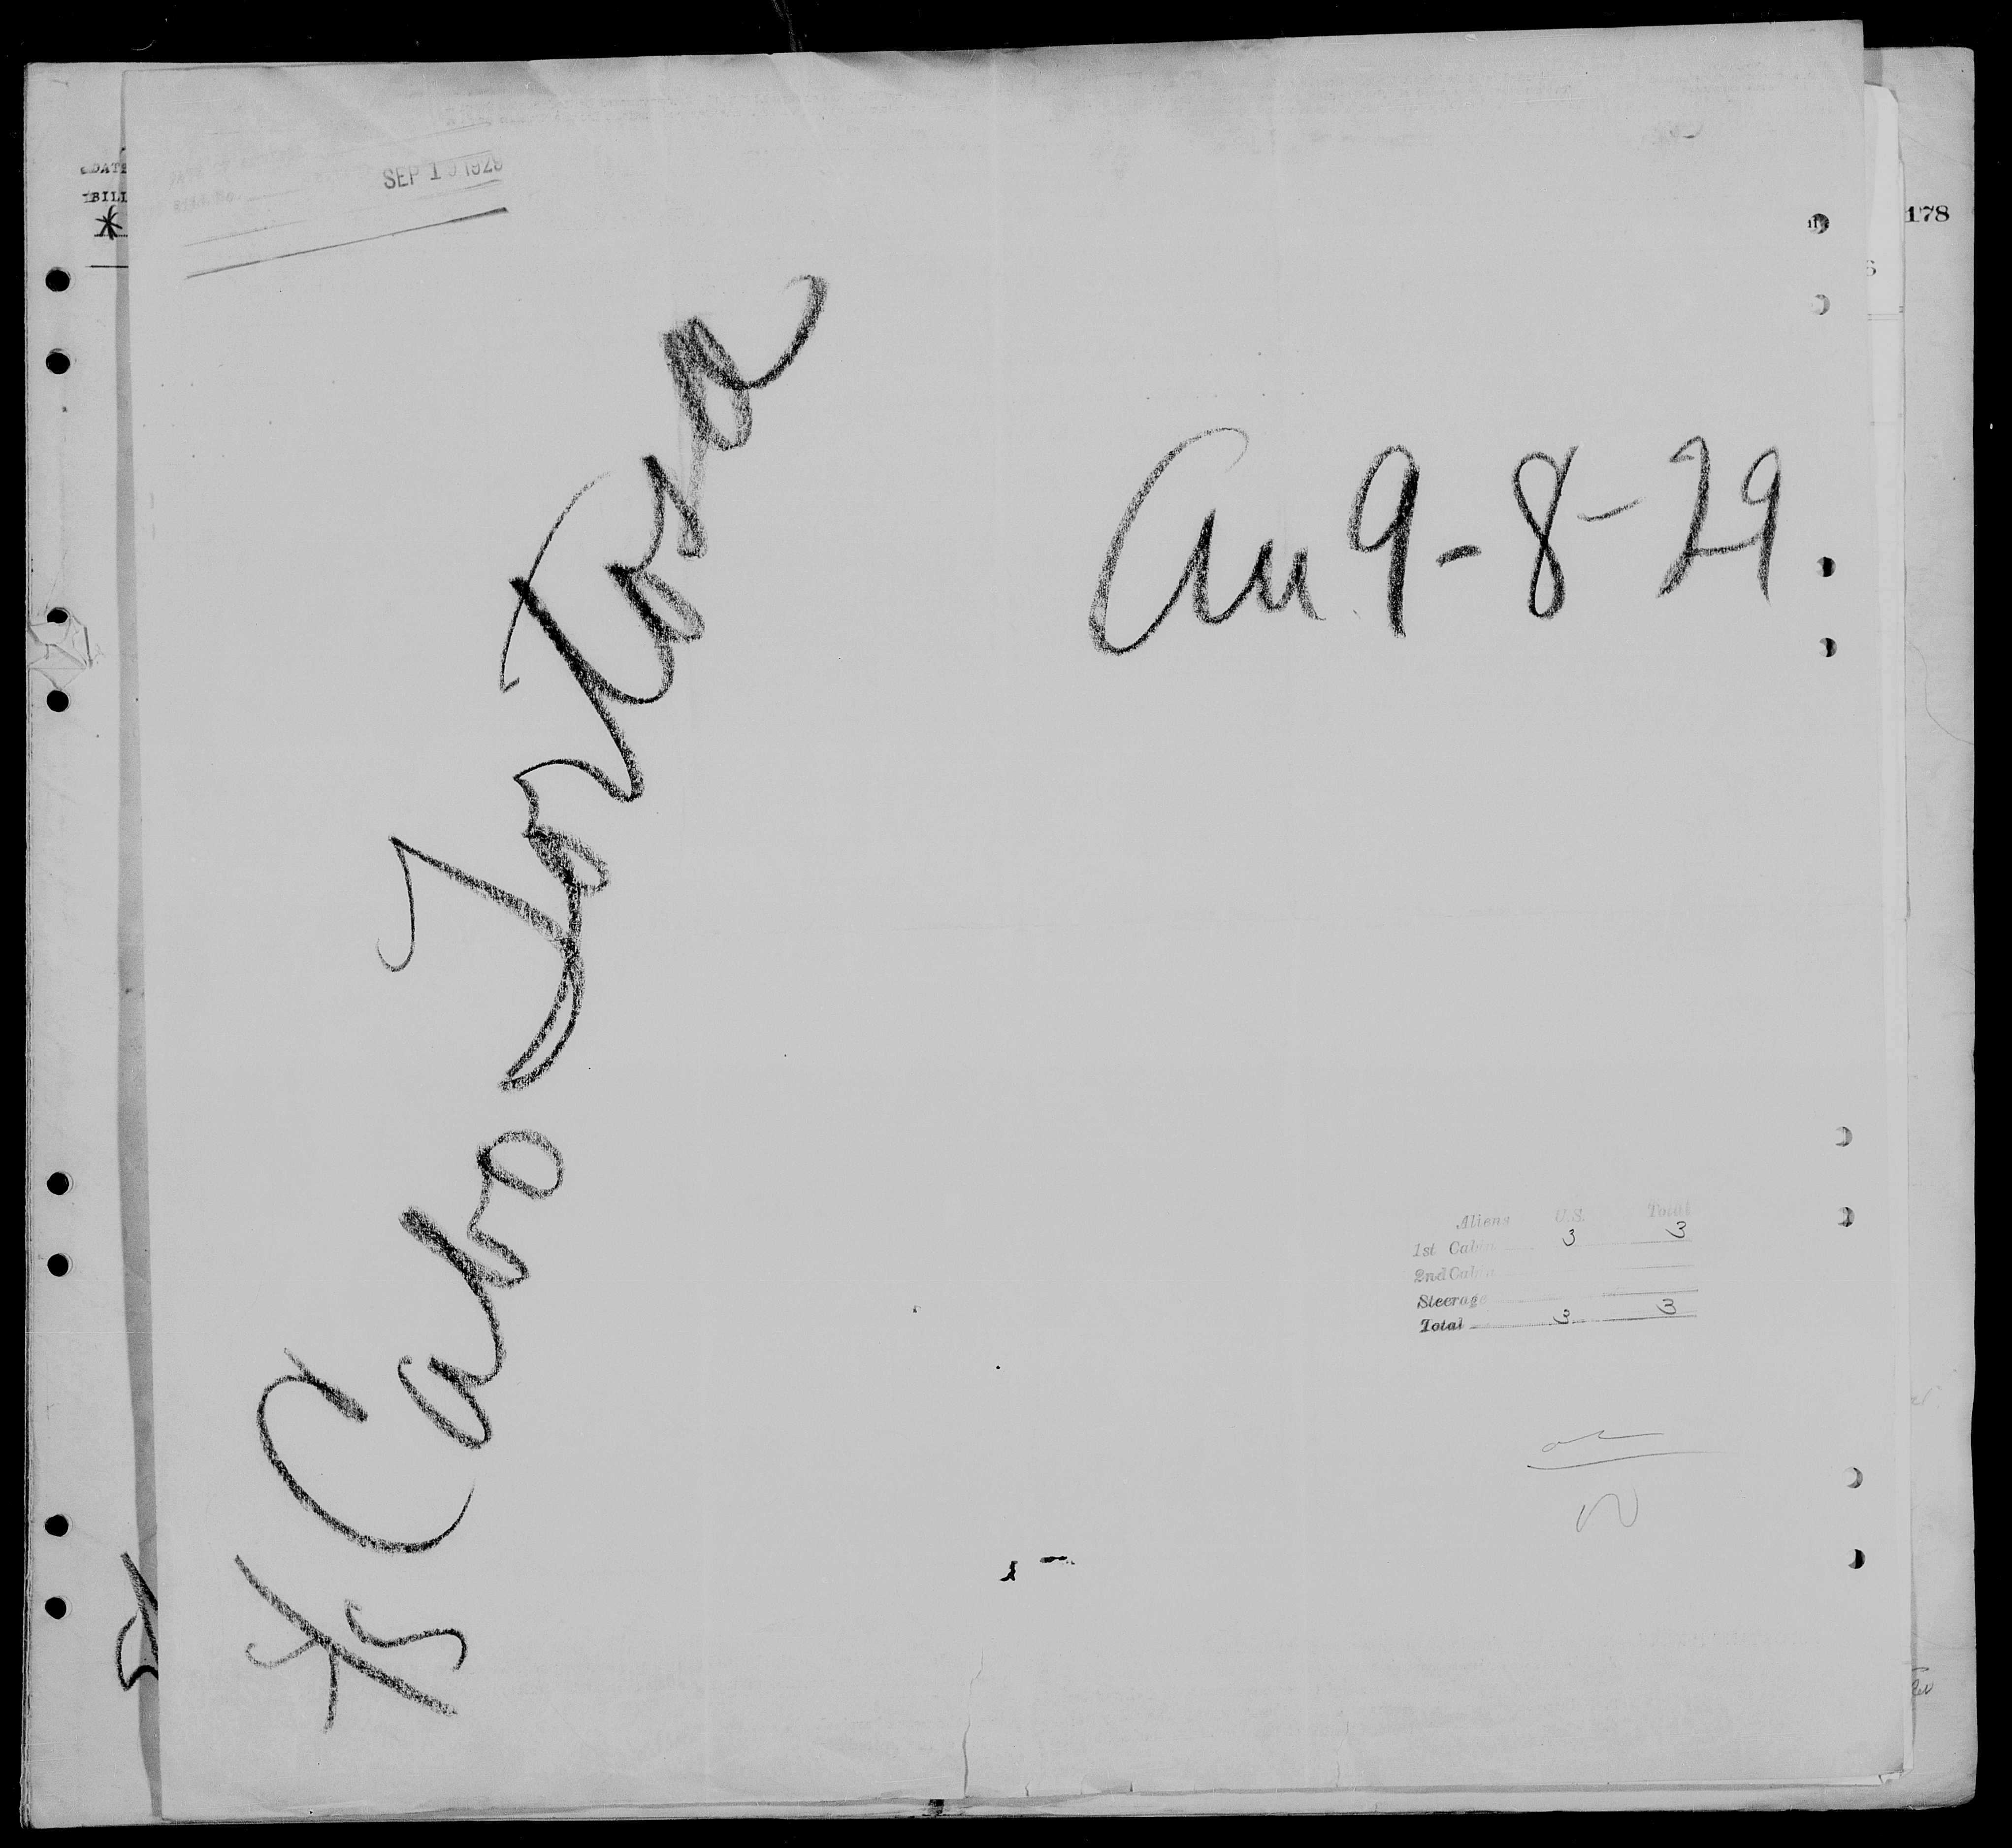 DATE
BILL
*
SEP 19 1929
178
Xs Cabo Tortosa
Arr 9-8-29.
Aliens U.S. Total
1st Cabin 3 3
2nd Cabin
Steerage
Total 3 3
ok